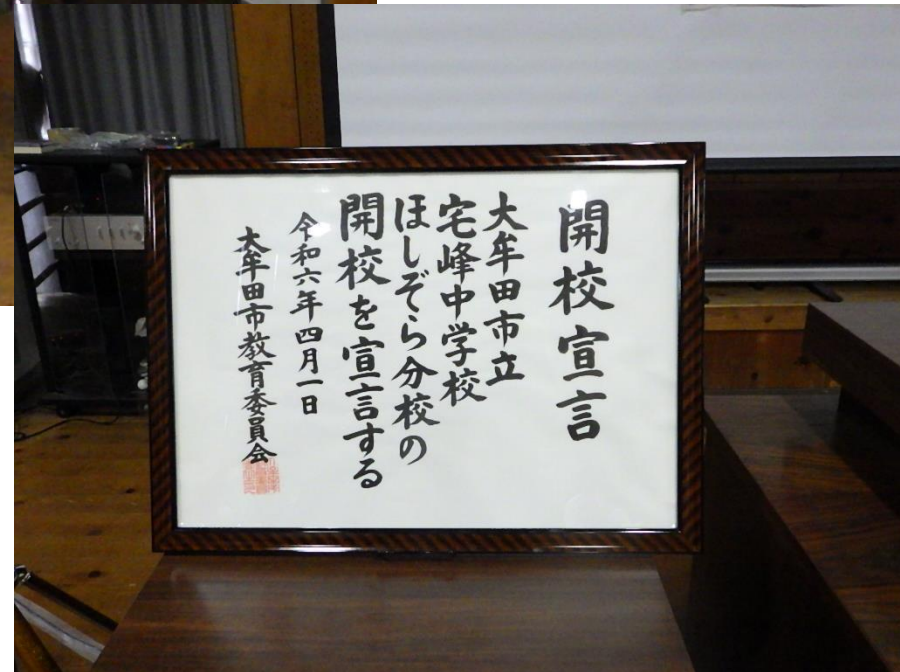 開校宣言
大牟田市立
宅峰中学校
ほしぞら分校の
開校を宣言する
令和六年四月一日
大牟田市教育委員会